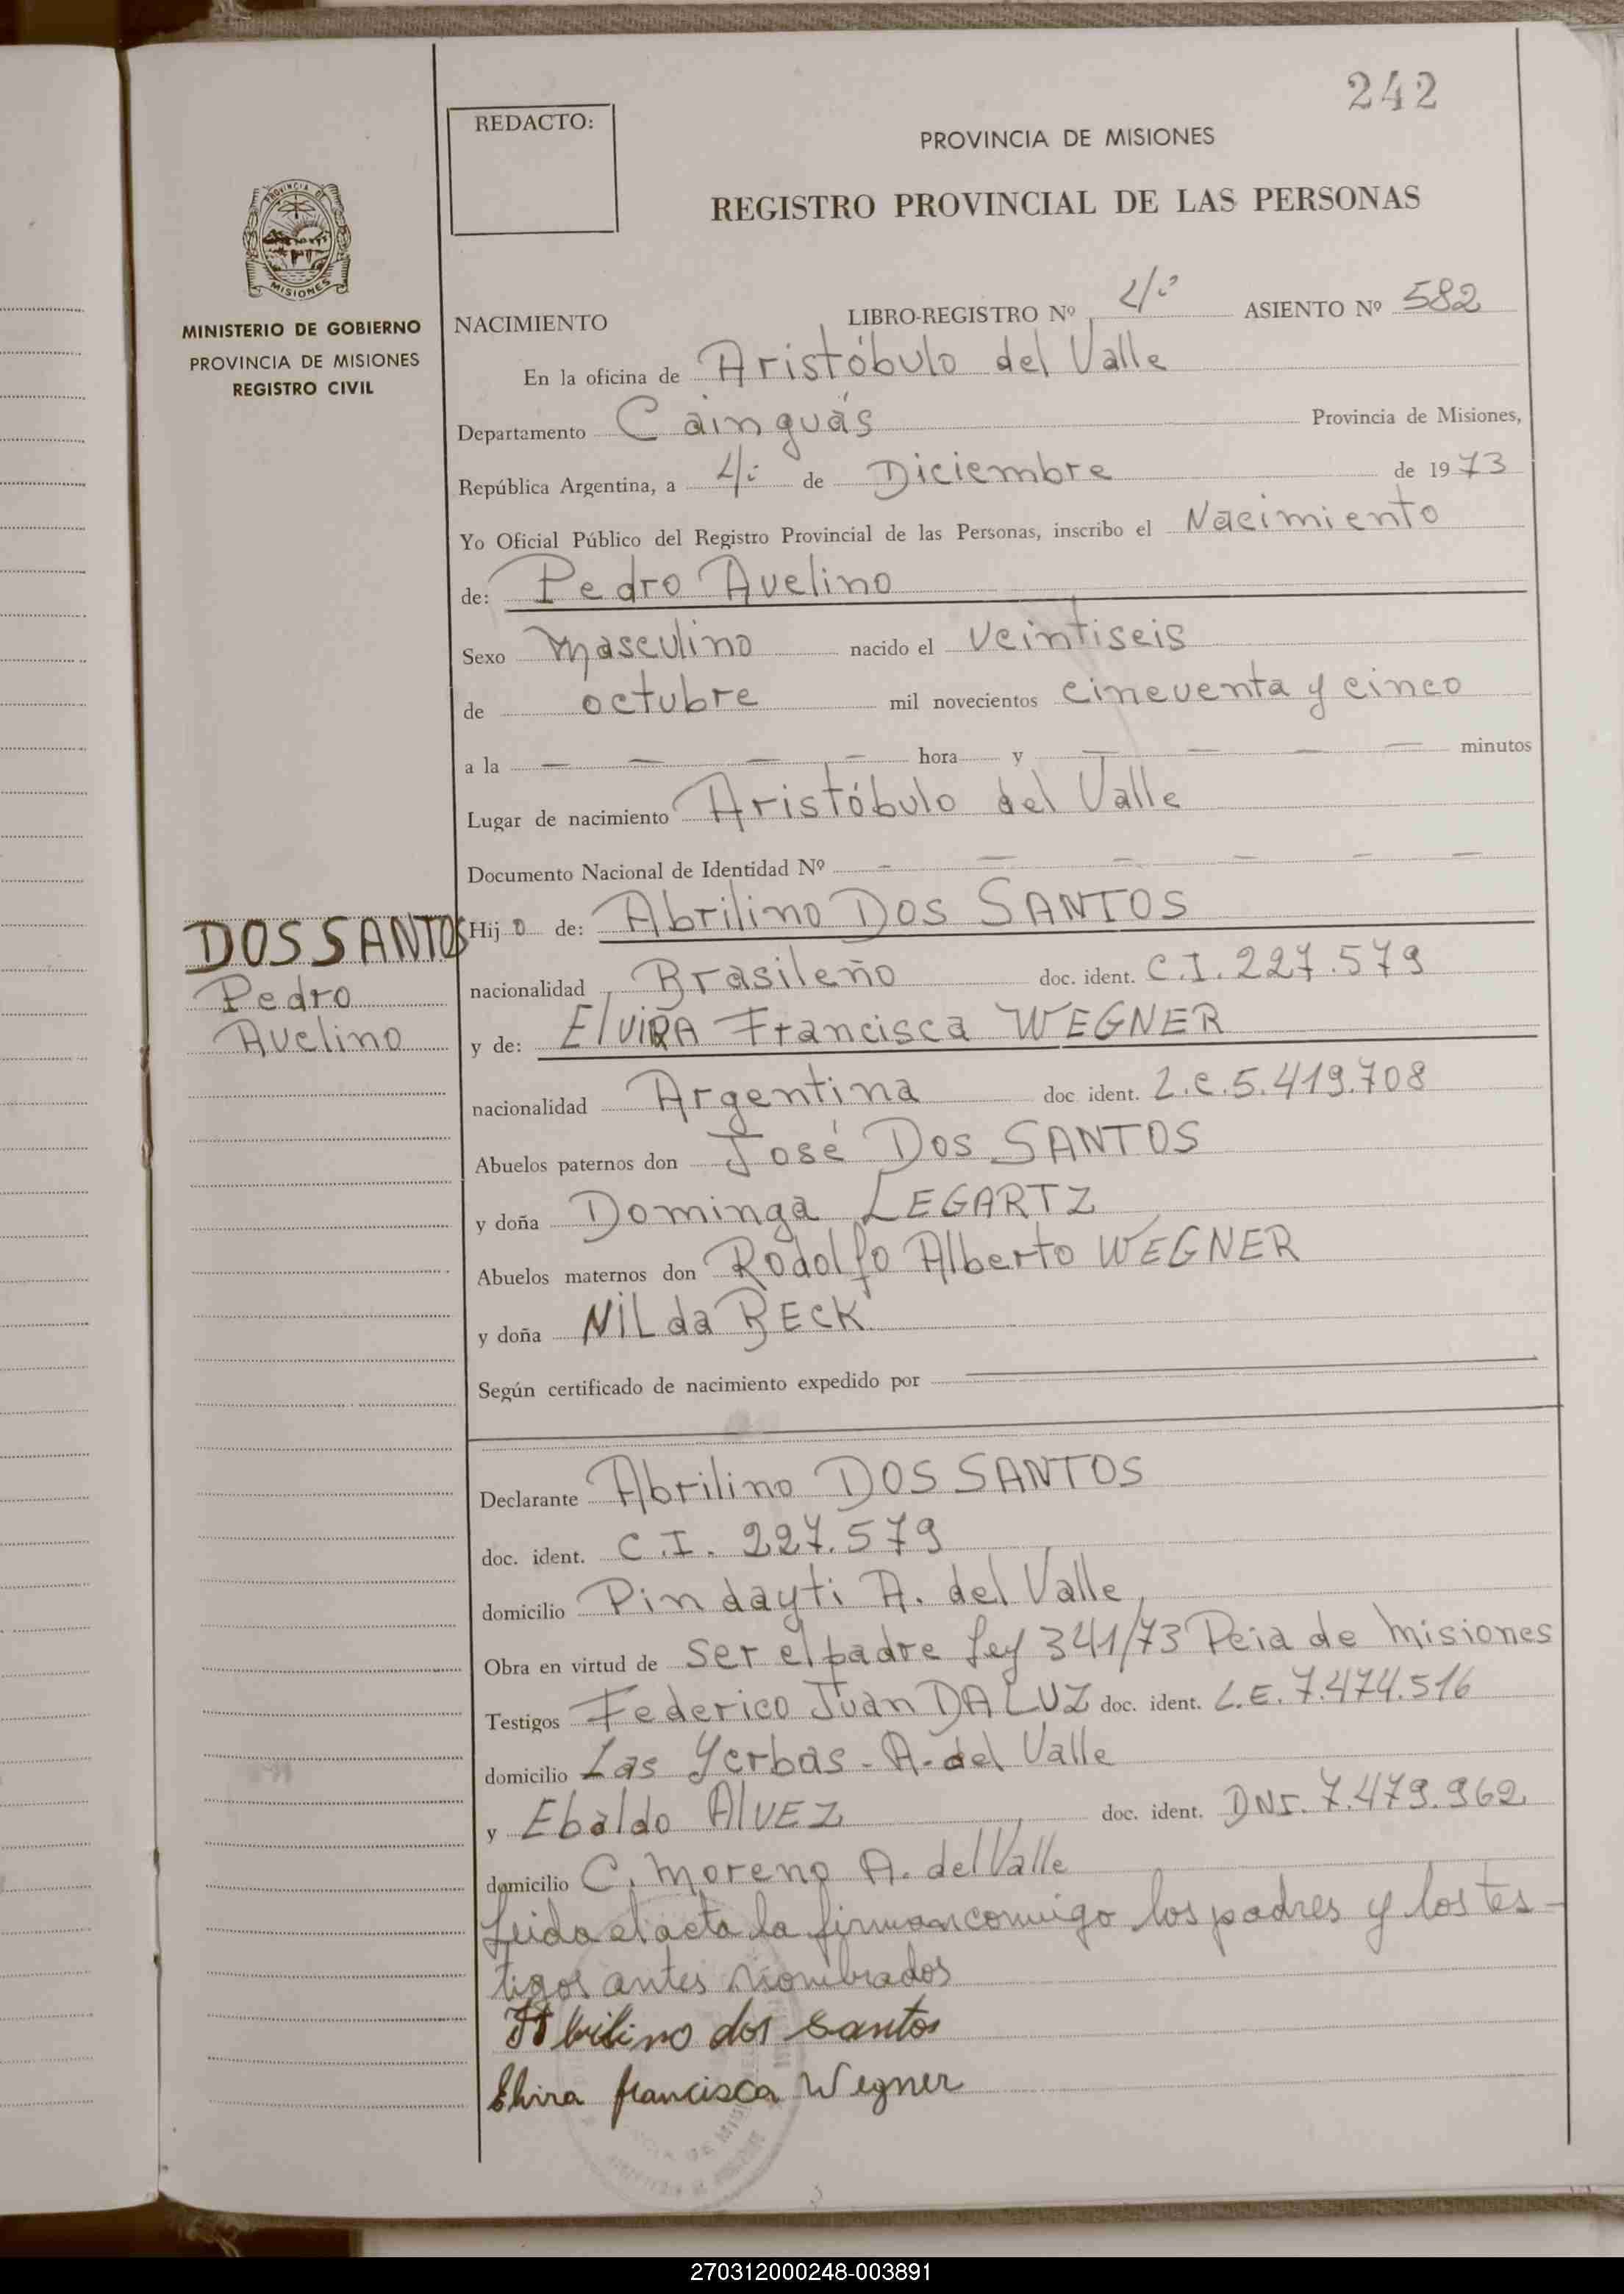 242
REDACTO:
PROVINCIA DE MISIONES
REGISTRO PROVINCIAL DE LAS PERSONAS
PROVINCIA DE
MISIONES
MINISTERIO DE GOBIERNO
PROVINCIA DE MISIONES
REGISTRO CIVIL
NACIMIENTO LIBRO-REGISTRO Nº 4/º ASIENTO Nº 582
En la oficina de Aristóbulo del Valle
Departamento Cainguás Provincia de Misiones,
República Argentina, a 4/: de Diciembre de 1973
Yo Oficial Público del Registro Provincial de las Personas, inscribo el Nacimiento
de: Pedro Avelino
Sexo masculino nacido el veintiseis
de octubre mil novecientos cincuenta y cinco
a la — — — — hora y — — — — minutos
Lugar de nacimiento Aristóbulo del Valle
Documento Nacional de Identidad Nº — — — — — —
DOS SANTOS
Pedro
Avelino
Hijo de: Abrilino Dos SANTOS
nacionalidad Brasileño doc. ident. C.I. 227.579
y de: ElviRA Francisca WEGNER
nacionalidad Argentina doc ident. L.C. 5.419.708
Abuelos paternos don José Dos SANTOS
y doña Dominga LEGARTZ
Abuelos maternos don Rodolfo Alberto WEGNER
y doña NILda BECK
Según certificado de nacimiento expedido por
Declarante Abrilino DOS SANTOS
doc. ident. C.I. 227.579
domicilio Pindayti A. del Valle
Obra en virtud de ser el padre Ley 341/73 Pcia de Misiones
Testigos Federico Juan DA LUZ doc. ident. L.E. 7.474.516
domicilio Las Yerbas - A. del Valle
y Ebaldo AlVEZ doc. ident. DNI. 7.479.962
domicilio C. Moreno A. del Valle
Leida el acta la firman conmigo los padres y los tes-
tigos antes nombrados
Abrilino dos santos
Elvira francisca Wegner
270312000248-003891